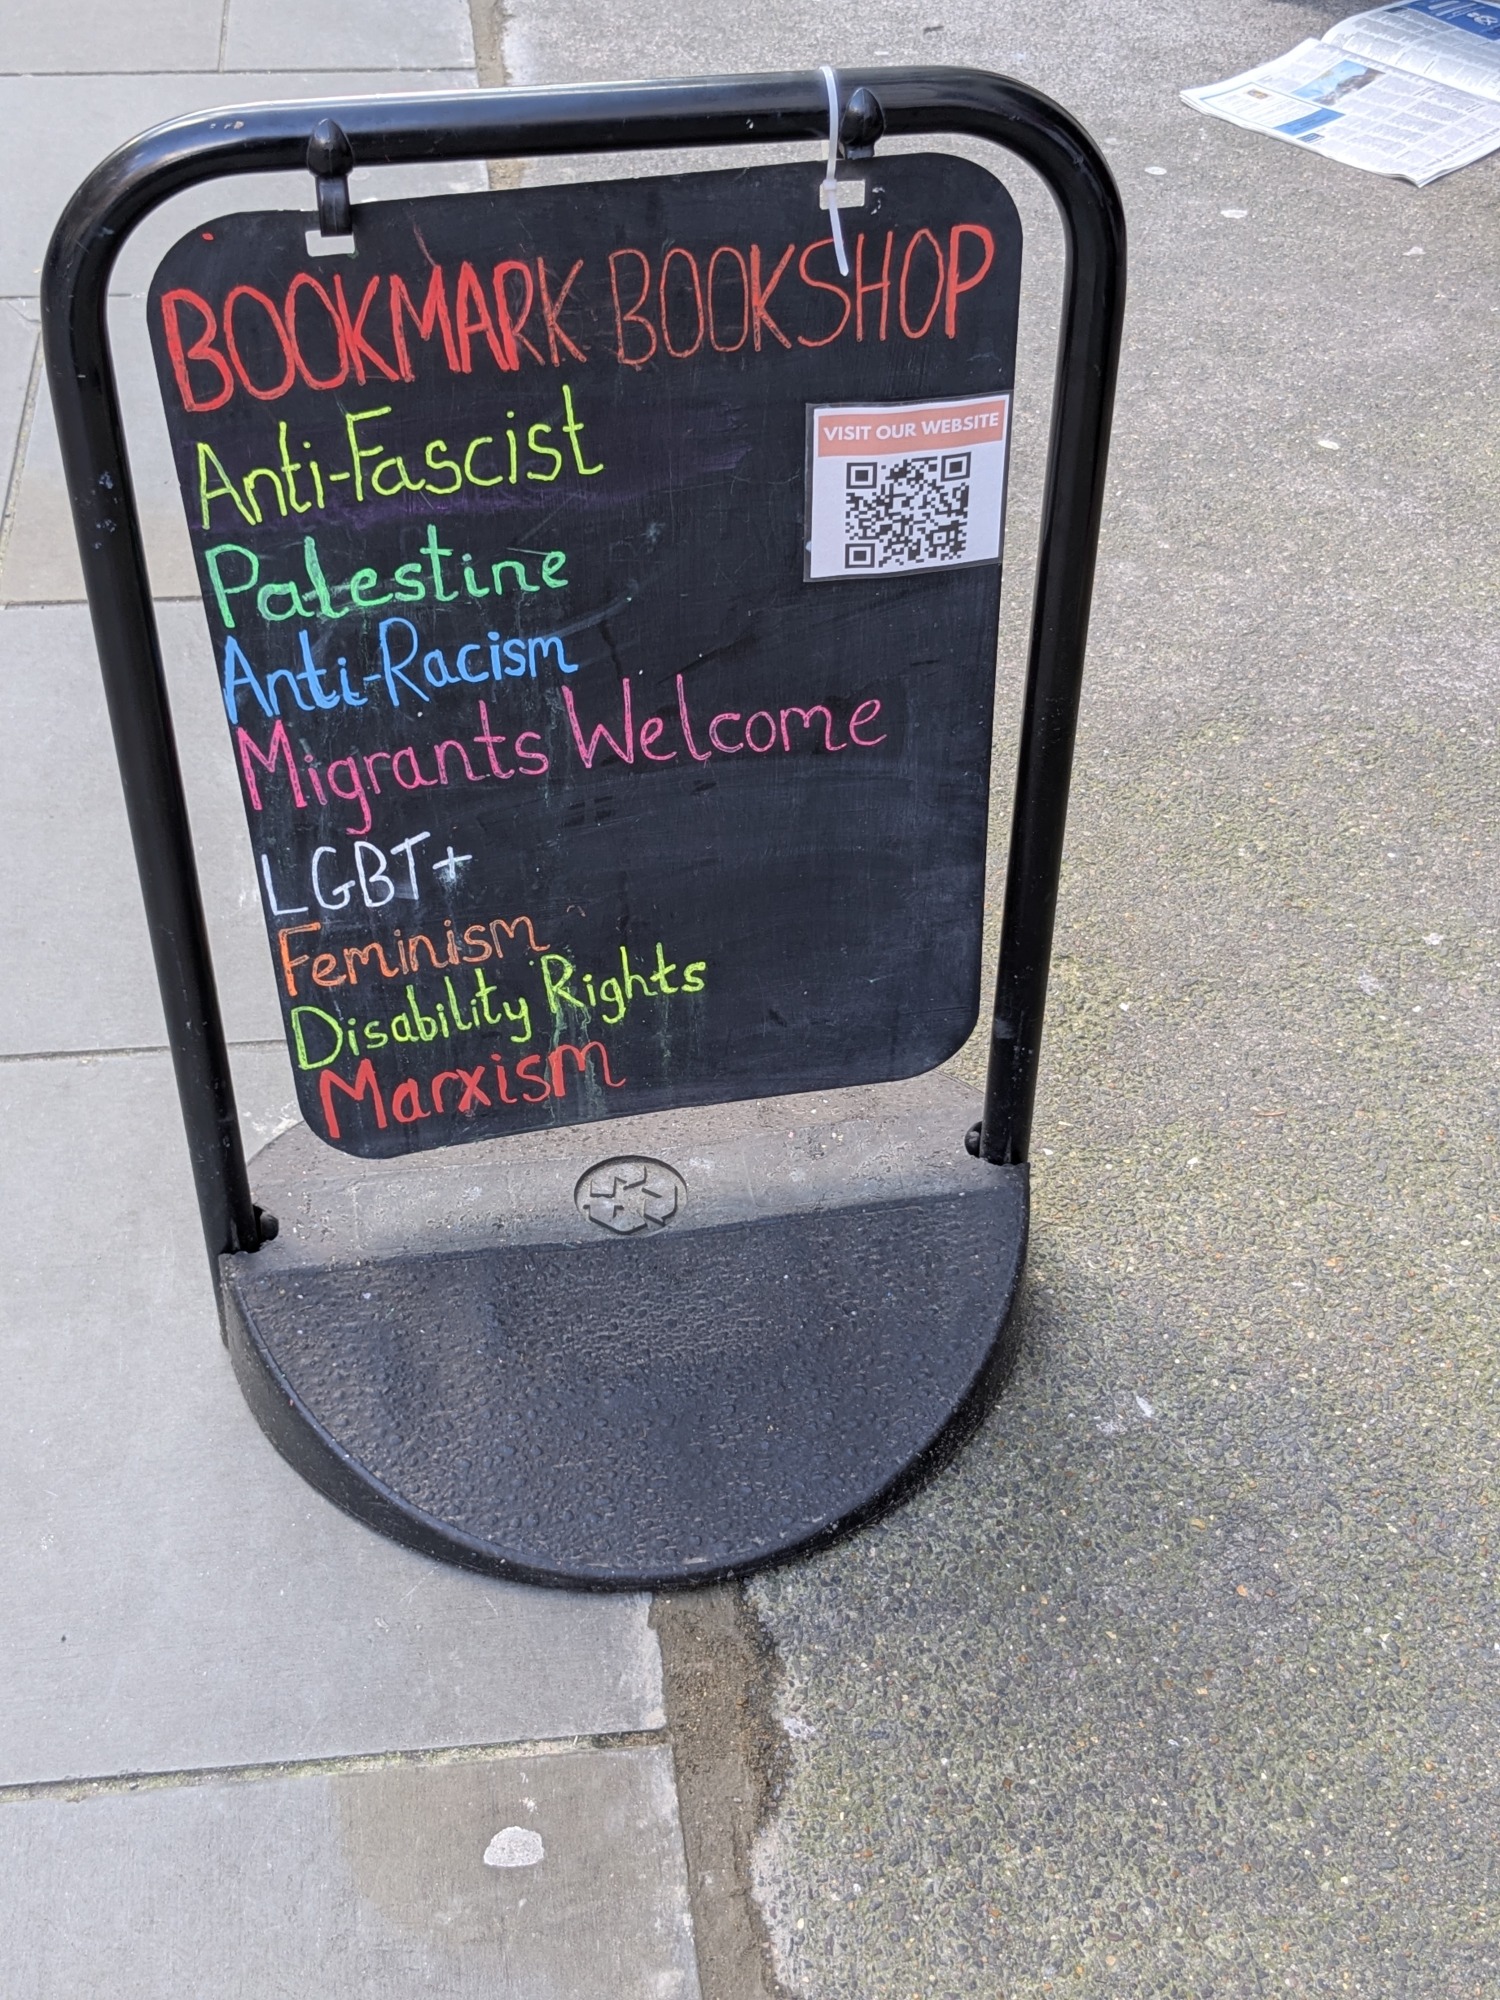 BOOKMARK BOOKSHOP
Anti-Fascist
VISIT OUR WEBSITE
Palestine
Anti-Racism
Migrants Welcome
LGBT+
Feminism
Disability Rights
Marxism